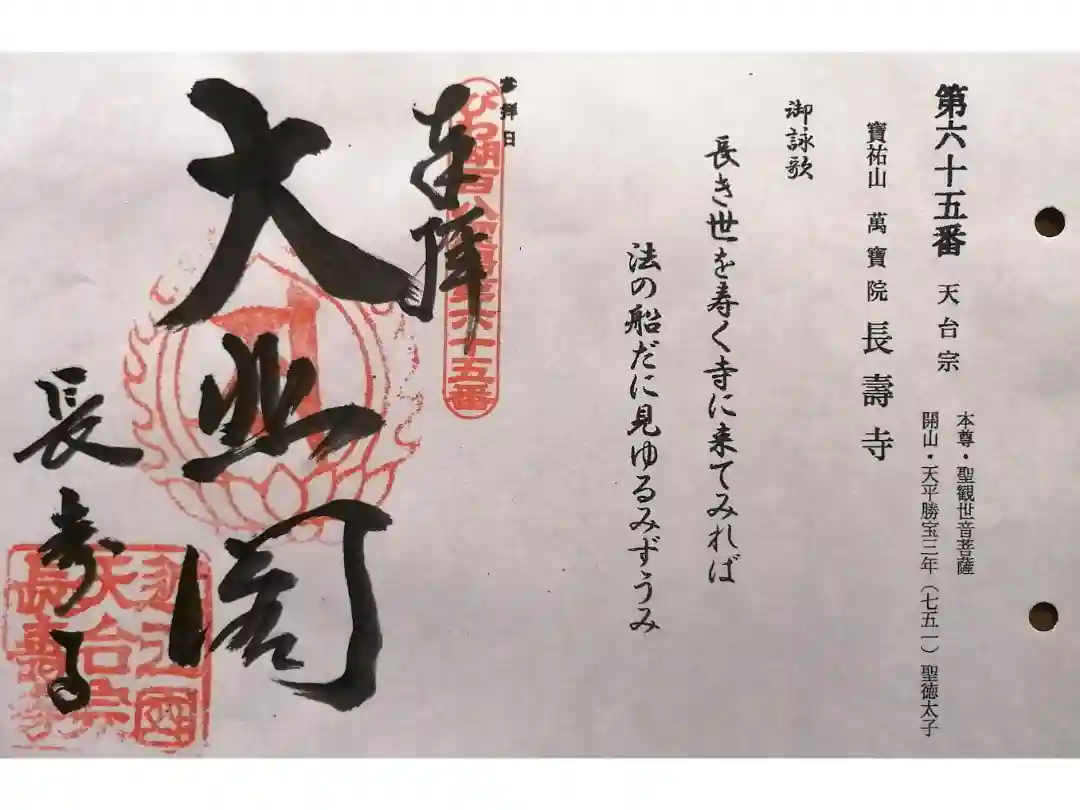 第六十五番 天台宗
本尊・聖観世音菩薩
開山・天平勝宝三年（七五一）聖徳太子
寶祐山 萬寶院 長壽寺
御詠歌
長き世を寿く寺に来てみれば
法の船だに見ゆるみずうみ
参拝日
びわ湖百八霊場第六十五番
奉拝
大悲閣
長寿寺
近江國
天台宗
長壽寺